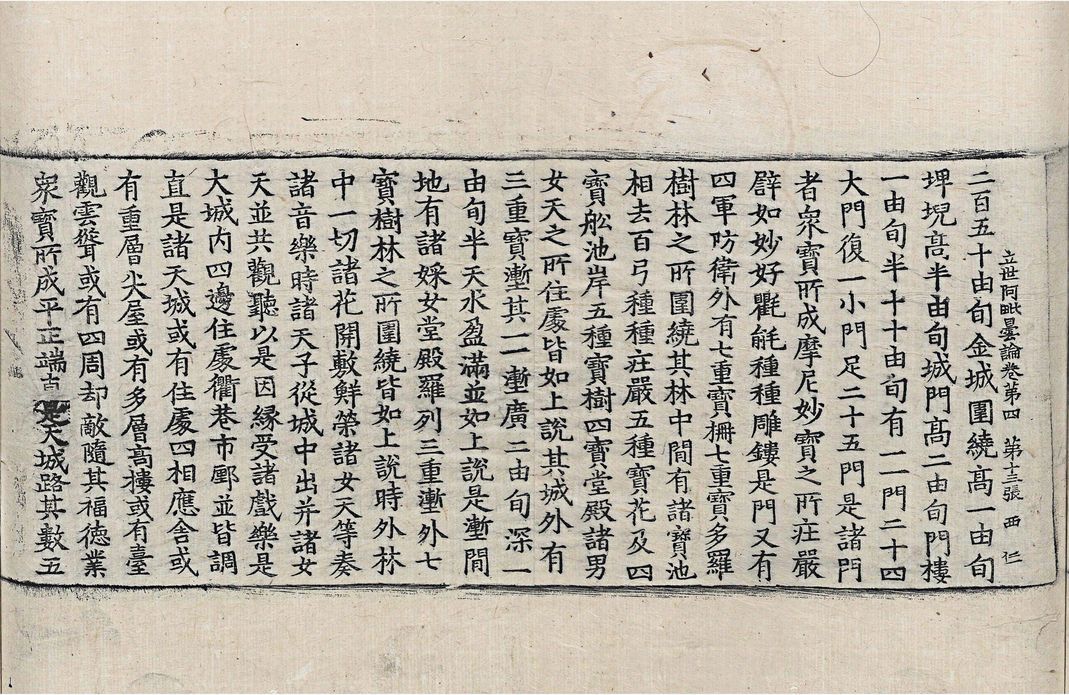 立世阿毗曇論卷第四　第十三張　西　仁
二百五十由旬金城圍繞髙一由旬
埤堄髙半由旬城門髙二由旬門樓
一由旬半十十由旬有一門二十四
大門復一小門足二十五門是諸門
者衆寶所成摩尼妙寶之所莊嚴
譬如妙好氍毹種種雕鏤是門又有
四軍防衛外有七重寶柵七重寶多羅
樹林之所圍繞其林中間有諸寶池
相去百弓種種莊嚴五種寶花及四
寶舩池岸五種寶樹四寶堂殿諸男
女天之所住處皆如上說其城外有
三重寶壍其一一壍廣二由旬深一
由旬半天水盈滿並如上說是壍間
地有諸婇女堂殿羅列三重壍外七
寶樹林之所圍繞皆如上說時外林
中一切諸花開敷鮮榮諸女天等奏
諸音樂時諸天子從城中出并諸女
天並共觀聽以是因縁受諸戲樂是
大城内四邊住處衢巷市鄽並皆調
直是諸天城或有住處四相應舍或
有重層尖屋或有多層髙樓或有臺
觀雲聳或有四周却敵隨其福德業
衆寶所成平正端直是天城路其數五